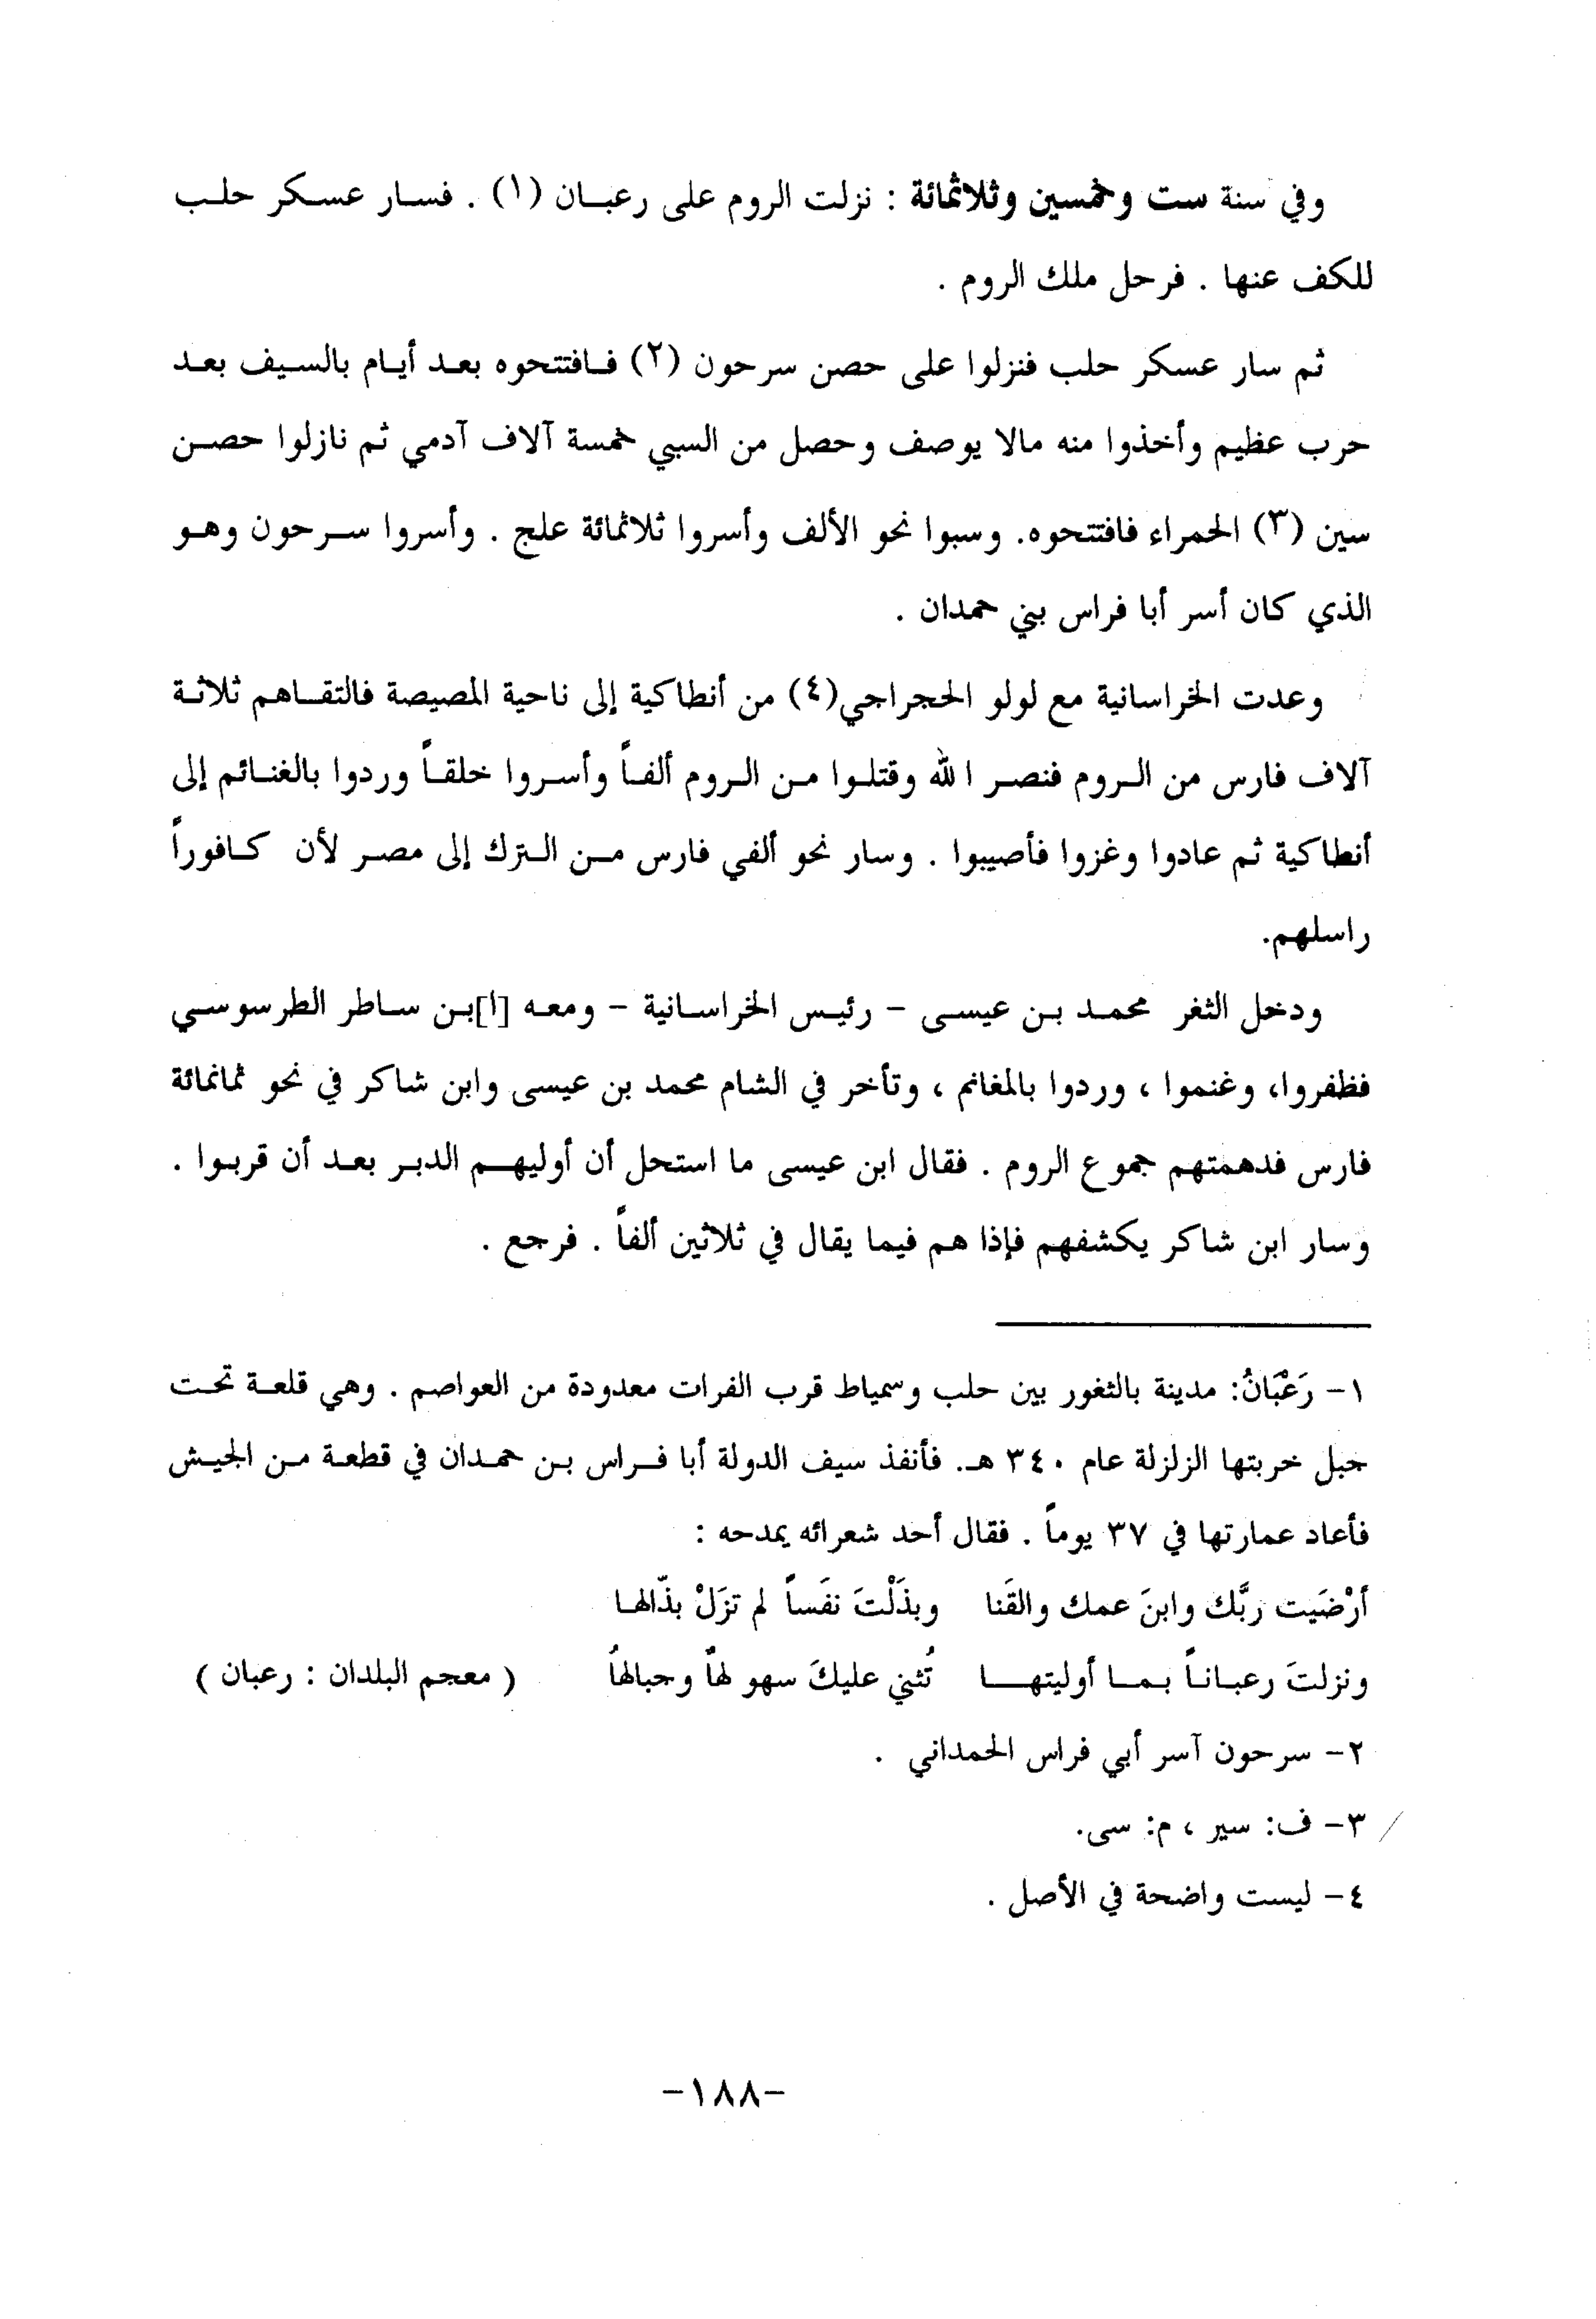 وفي سنة ست وخمسين وثلاثمائة : نزلت الروم على رعبان (١) . فسار عسكر حلب
للكف عنها . فرحل ملك الروم .
ثم سار عسكر حلب فنزلوا على حصن سرحون (٢) فافتتحوه بعد أيام بالسيف بعد
حرب عظيم وأخذوا منه مالا يوصف وحصل من السبي خمسة آلاف آدمي ثم نازلوا حصن
سين (٣) الحمراء فافتتحوه. وسبوا نحو الألف وأسروا ثلاثمائة علج . وأسروا سرحون وهو
الذي كان أسر أبا فراس بني حمدان .
وعدت الخراسانية مع لولو الحجراجي(٤) من أنطاكية إلى ناحية المصيصة فالتقاهم ثلاثة
آلاف فارس من الروم فنصر الله وقتلوا من الروم ألفاً وأسروا خلقاً وردوا بالغنائم إلى
أنطاكية ثم عادوا وغزوا فأصيبوا . وسار نحو ألفي فارس من الترك إلى مصر لأن كافوراً
راسلهم.
ودخل الثغر محمد بن عيسى – رئيس الخراسانية – ومعه [ا]بن ساطر الطرسوسي
فظفروا، وغنموا ، وردوا بالمغانم ، وتأخر في الشام محمد بن عيسى وابن شاكر في نحو ثمانمائة
فارس فدهمتهم جموع الروم . فقال ابن عيسى ما استحل أن أوليهم الدبر بعد أن قربوا .
وسار ابن شاكر يكشفهم فإذا هم فيما يقال في ثلاثين ألفاً . فرجع .
١– رَعْبَانُ: مدينة بالثغور بين حلب وسمياط قرب الفرات معدودة من العواصم . وهي قلعة تحت
جبل خربتها الزلزلة عام ٣٤٠ هـ. فأنفذ سيف الدولة أبا فراس بن حمدان في قطعة من الجيش
فأعاد عمارتها في ٣٧ يوماً . فقال أحد شعرائه يمدحه :
أرْضَيت ربَّك وابنَ عمك والقَنا وبذَلْتَ نفَساً لم تزَلْ بذّالها
ونزلتَ رعباناً بما أوليتها تُثني عليكَ سهولهاُ وجبالهاُ ( معجم البلدان : رعبان )
٢– سرحون آسر أبي فراس الحمداني .
٣– ف: سير ، م: سى.
٤– ليست واضحة في الأصل .
–١٨٨–